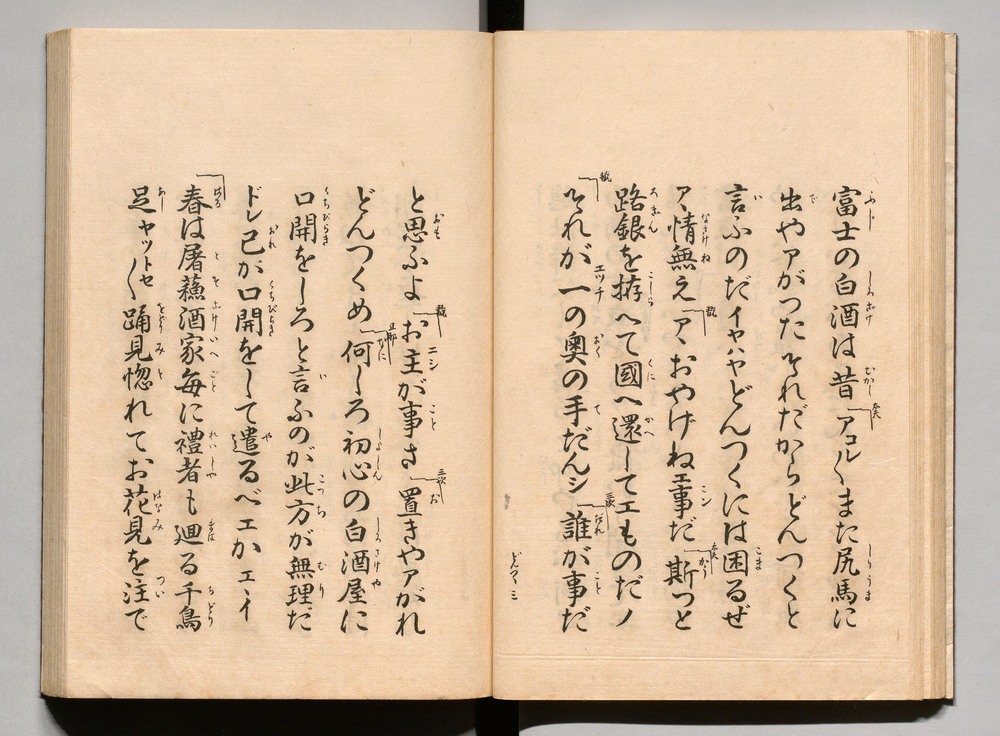 富士の白酒は昔「アコレ〳〵また尻馬に
出やアがつたそれだからどんつくと
言ふのだイヤハヤどんつくには困るぜ
アヽ情無え「アヽおやげねエ事だ「斯つと
路銀を拵へて國へ還してエものだノ
「それが一の奥の手だんシ「誰が事だ
どんつく 三
と思ふよ「お主が事さ「置きやアがれ
どんつくめ「何しろ初心の白酒屋に
口開をしろと言ふのが此方が無理だ
ドレ己が口開をして遣るべエかエヽイ
「春は屠蘓酒家毎に禮者も廻る千鳥
足ヤットセ〳〵踊見惚れてお花見を注で